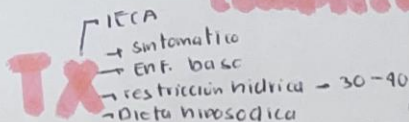 TX
IECA
→ sintomatico
→ Enf. base
→ restricción hidrica - 30-40
→ Dieta hiposodica